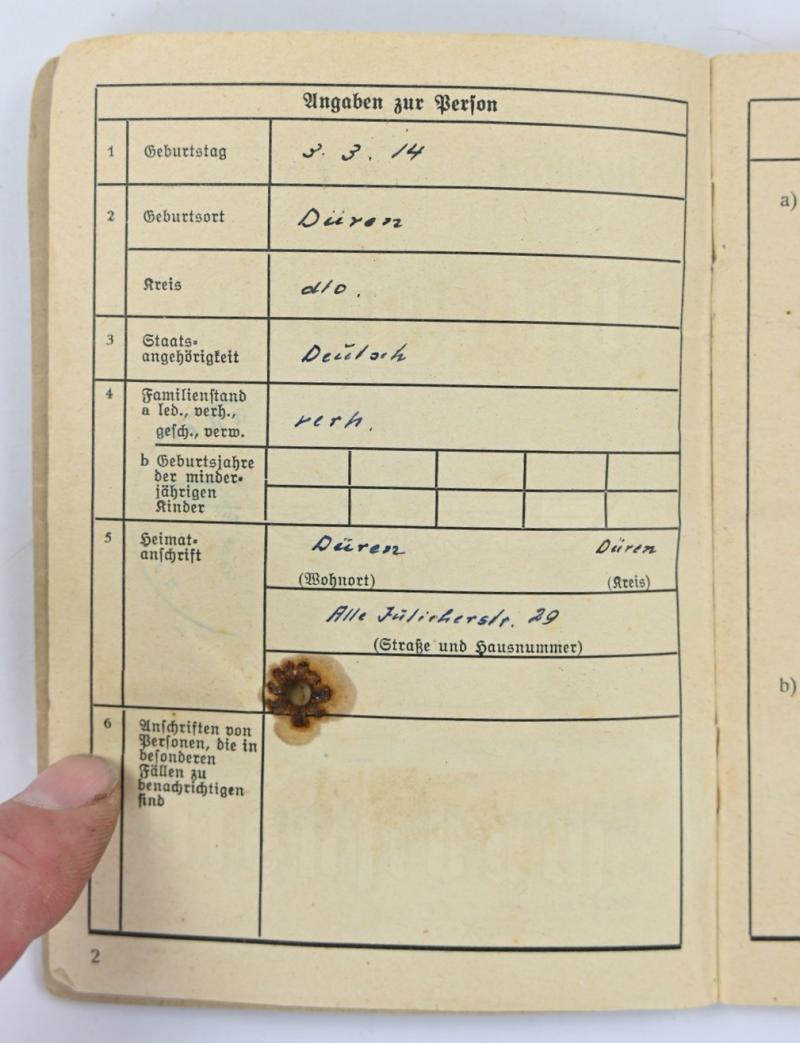 Angaben zur Person
1 Geburtstag 3. 3. 14
2 Geburtsort Düren
Kreis dto.
3 Staats=
angehörigkeit Deutsch
4 Familienstand
a led., verh.,
gesch., verw. verh.
b Geburtsjahre
der minder=
jährigen
Kinder
5 Heimat=
anschrift Düren Düren
(Wohnort) (Kreis)
Alte Jülicherstr. 29
(Straße und Hausnummer)
6 Anschriften von
Personen, die in
besonderen
Fällen zu
benachrichtigen
sind
2
a)
b)